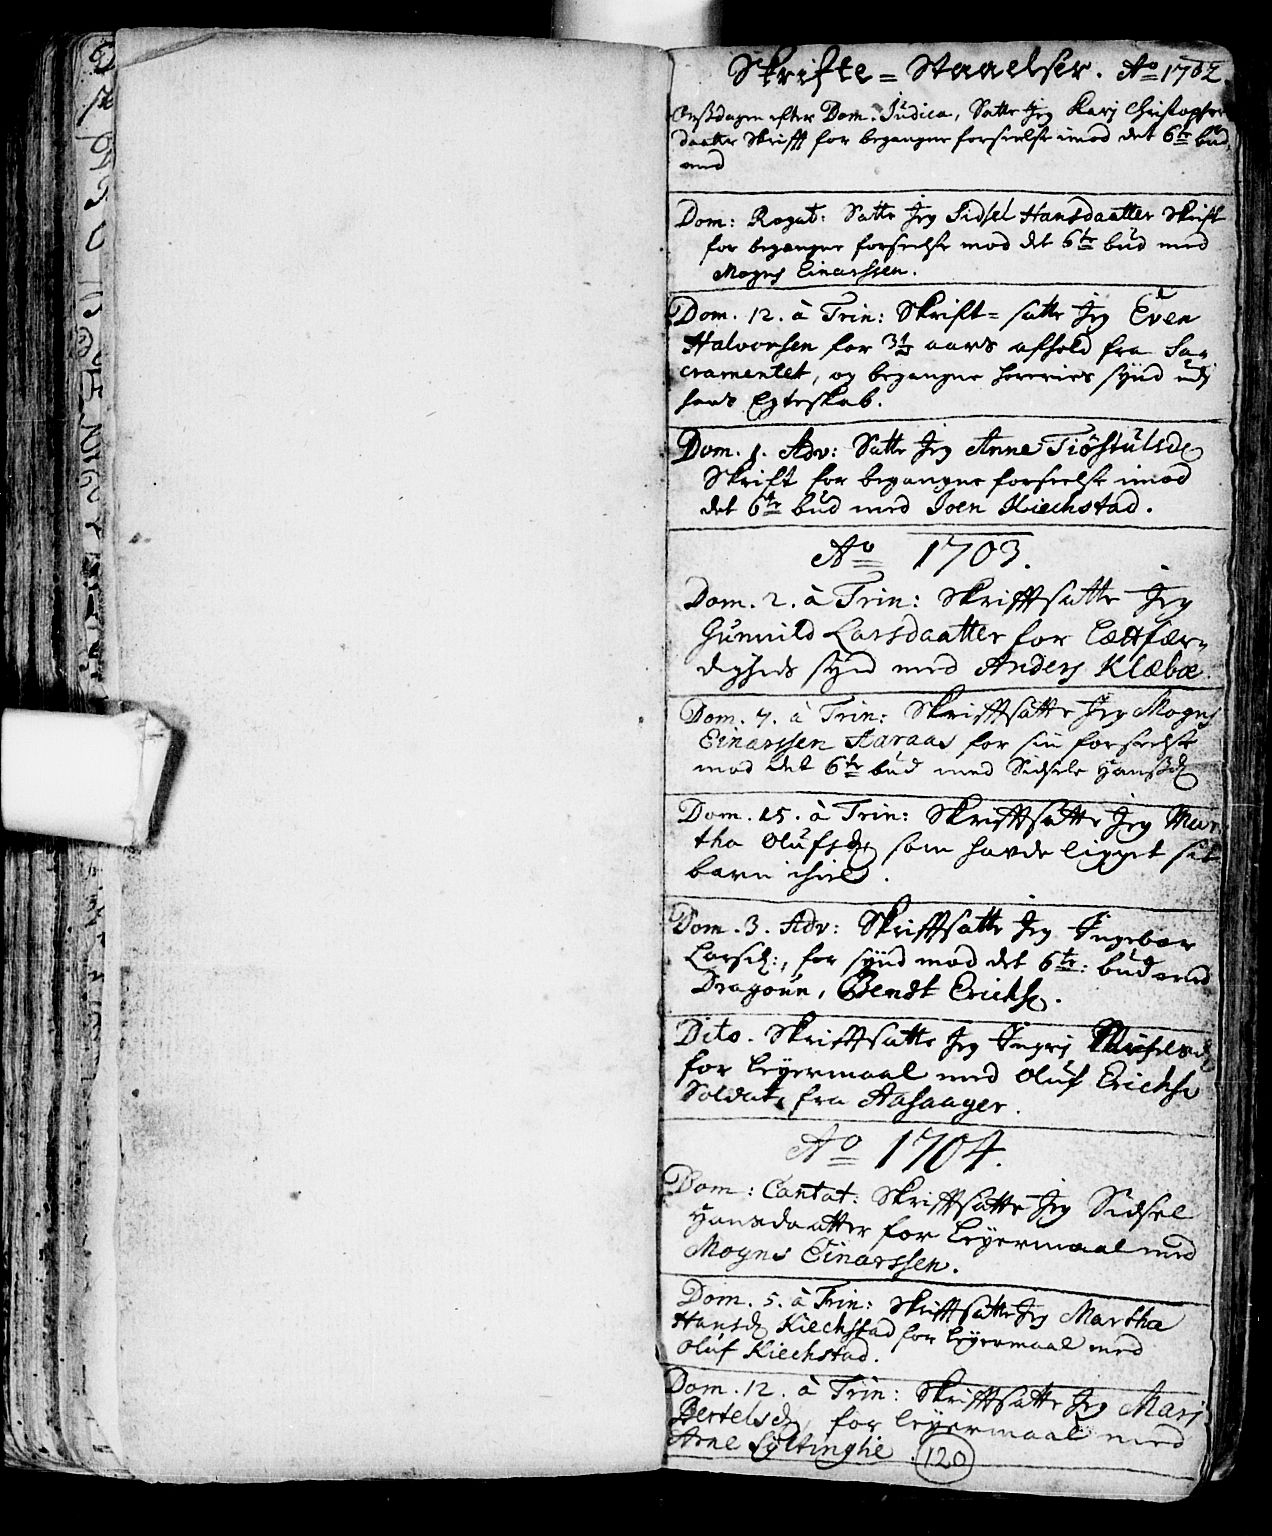 Skrifte = Staaelser. Ao 1702
Onsdagen efter Dom. Judica, Satte Jeg Karj Christopher
daatter Skrifft for begangne forseelse imod det 6te bud
med
Dom: Rogat: Satte Jeg Sidsel Hansdaatter Skrift
for begangne forseelse mod det 6te bud med
Mogns Einarssen.
Dom. 12. à Trin: Skrift= satte Jeg Even
Halvorsen for 3½ aars afhold fra Sa=
cramentet, og begangne horeries synd udj
hans Egteskab.
Dom. 1. Adv: Satte Jeg Anne Tiøstulsd
Skrift for begangne forseelse imod
det 6te bud med Joen Kiechstad.
Ao 1703.
Dom. 2. à Trin: Skrifftsatte Jeg
Gunnild Larsdaatter for Lættfær=
digheds synd med Anders Klæbæ.
Dom. 7. à Trin: Skrifftsatte Jeg Mogns
Einarssen Aaraas for sin forseelse
mod det 6te bud med Sidsele Hansd
Dom. 15. à Trin: Skrifftsatte Jeg Mar
tha Olufsd som hafde ligget sit
barn ihiel.
Dom. 3. Adv: Skrifftsatte Jeg Ingebor
Larsd:, for synd mod det 6te: bud med
Dragoun, Bendt Erichs.
Dito. Skrifftsatte Jeg Ingrj
for Leyermaal med Oluf Erichs
Soldat, fra Aasaager.
Ao 1704.
Dom: Cantat: Skrifftsatte Jeg Sidsel
Hansdaatter for Leyermaal med
Mogns Einarssen.
Dom. 5. à Trin: Skrifftsatte Jeg Martha
Hansd Kiechstad for Leyermaal med
Oluf Kiechstad.
Dom. 12. à Trin: Skrifftsatte Jeg Marj
Bertelsd, for Leyermaal med
Arne Syltinglie.
120